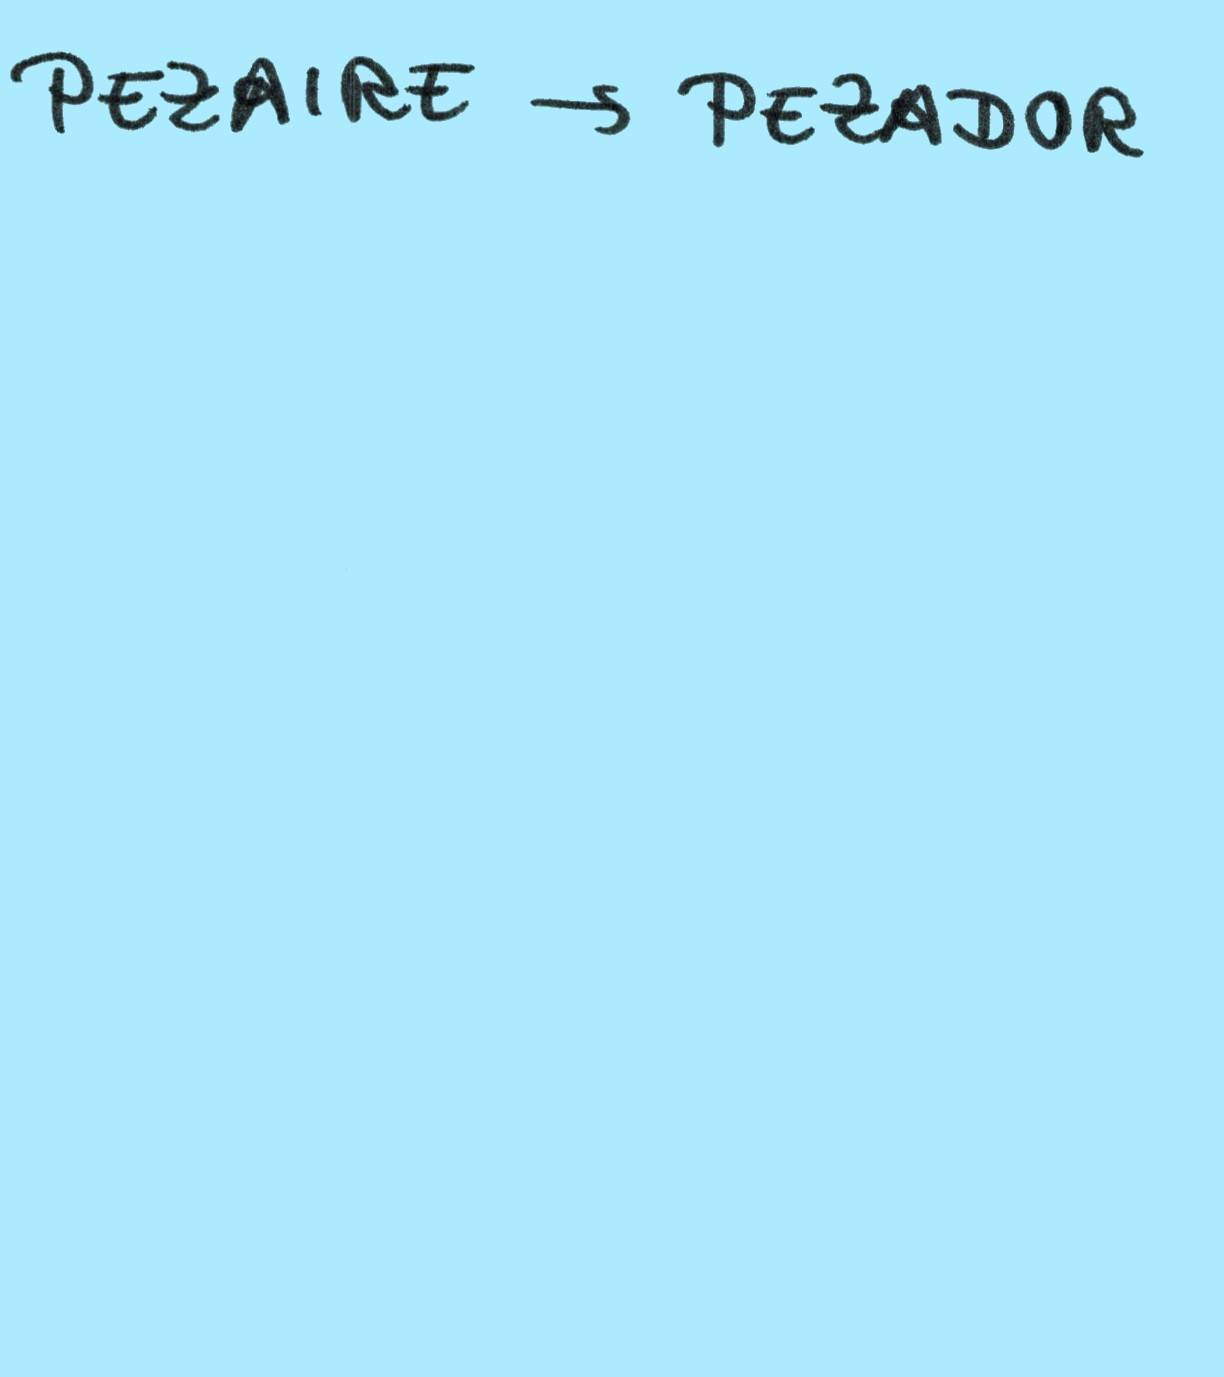 PEZAIRE → PEZADOR